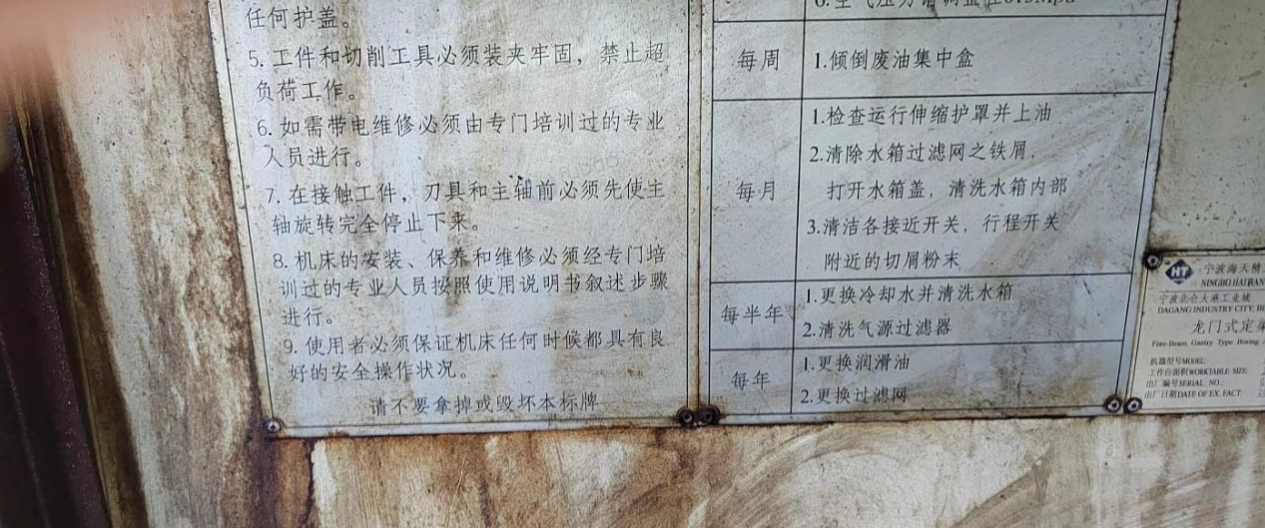 任何护盖。
5. 工件和切削工具必须装夹牢固，禁止超
负荷工作。
6. 如需带电维修必须由专门培训过的专业
人员进行。
7. 在接触工件，刀具和主轴前必须先使主
轴旋转完全停止下来。
8. 机床的安装、保养和维修必须经专门培
训过的专业人员按照使用说明书叙述步骤
进行。
9. 使用者必须保证机床任何时候都具有良
好的安全操作状况。
请不要拿掉或毁坏本标牌
每周
1.倾倒废油集中盒
每月
1.检查运行伸缩护罩并上油
2.清除水箱过滤网之铁屑，
打开水箱盖，清洗水箱内部
3.清洁各接近开关，行程开关
附近的切屑粉末
每半年
1.更换冷却水并清洗水箱
2.清洗气源过滤器
每年
1.更换润滑油
2.更换过滤网
HT
宁波海天精
NINGBO HAITIAN
宁波北仑大港工业城
DAGANG INDUSTRY CITY, BE
龙门式定梁
Fixe-Beam Gantry Type Boring
机器型号MODEL:
工作台面积WORKTABLE SIZE:
出厂编号SERIAL NO.:
出厂日期DATE OF EX. FACT: